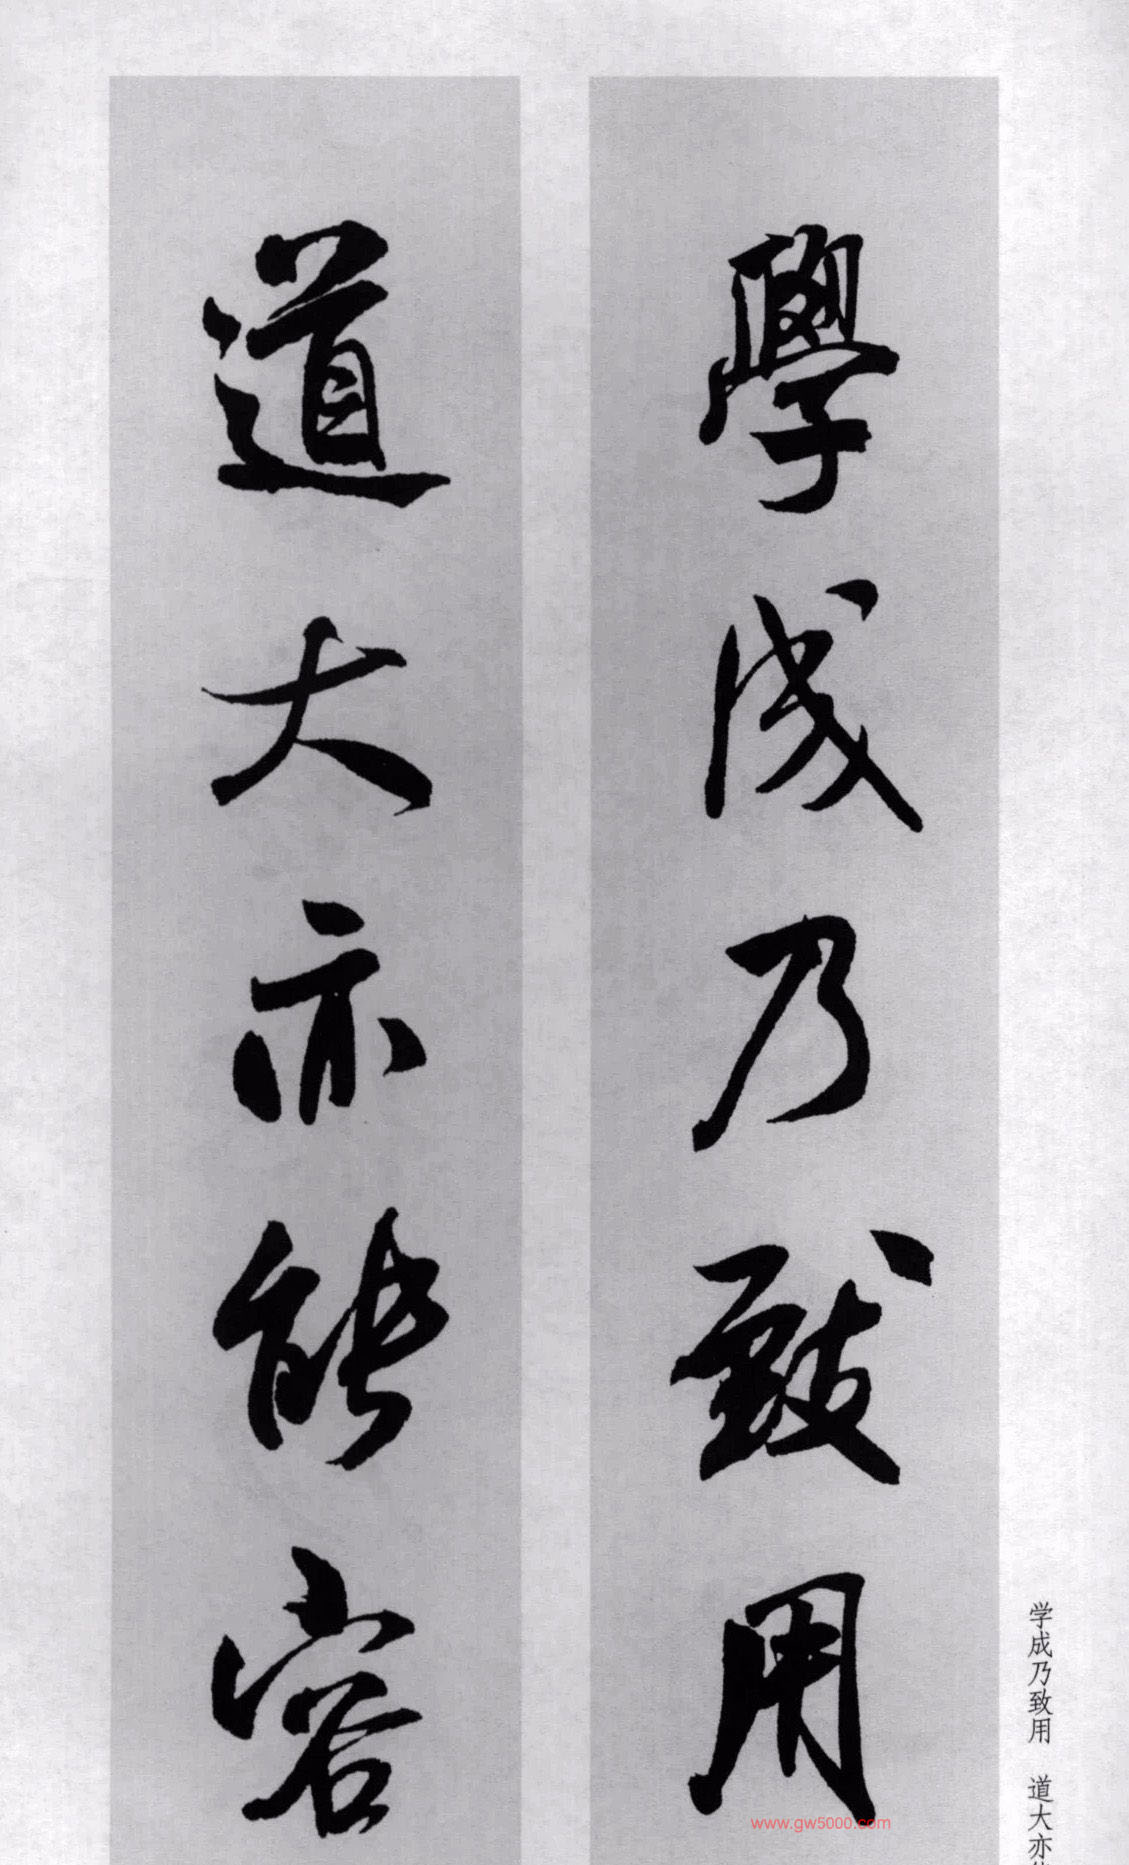 學成乃致用
道大亦能容
学成乃致用 道大亦
www.gw5000.com